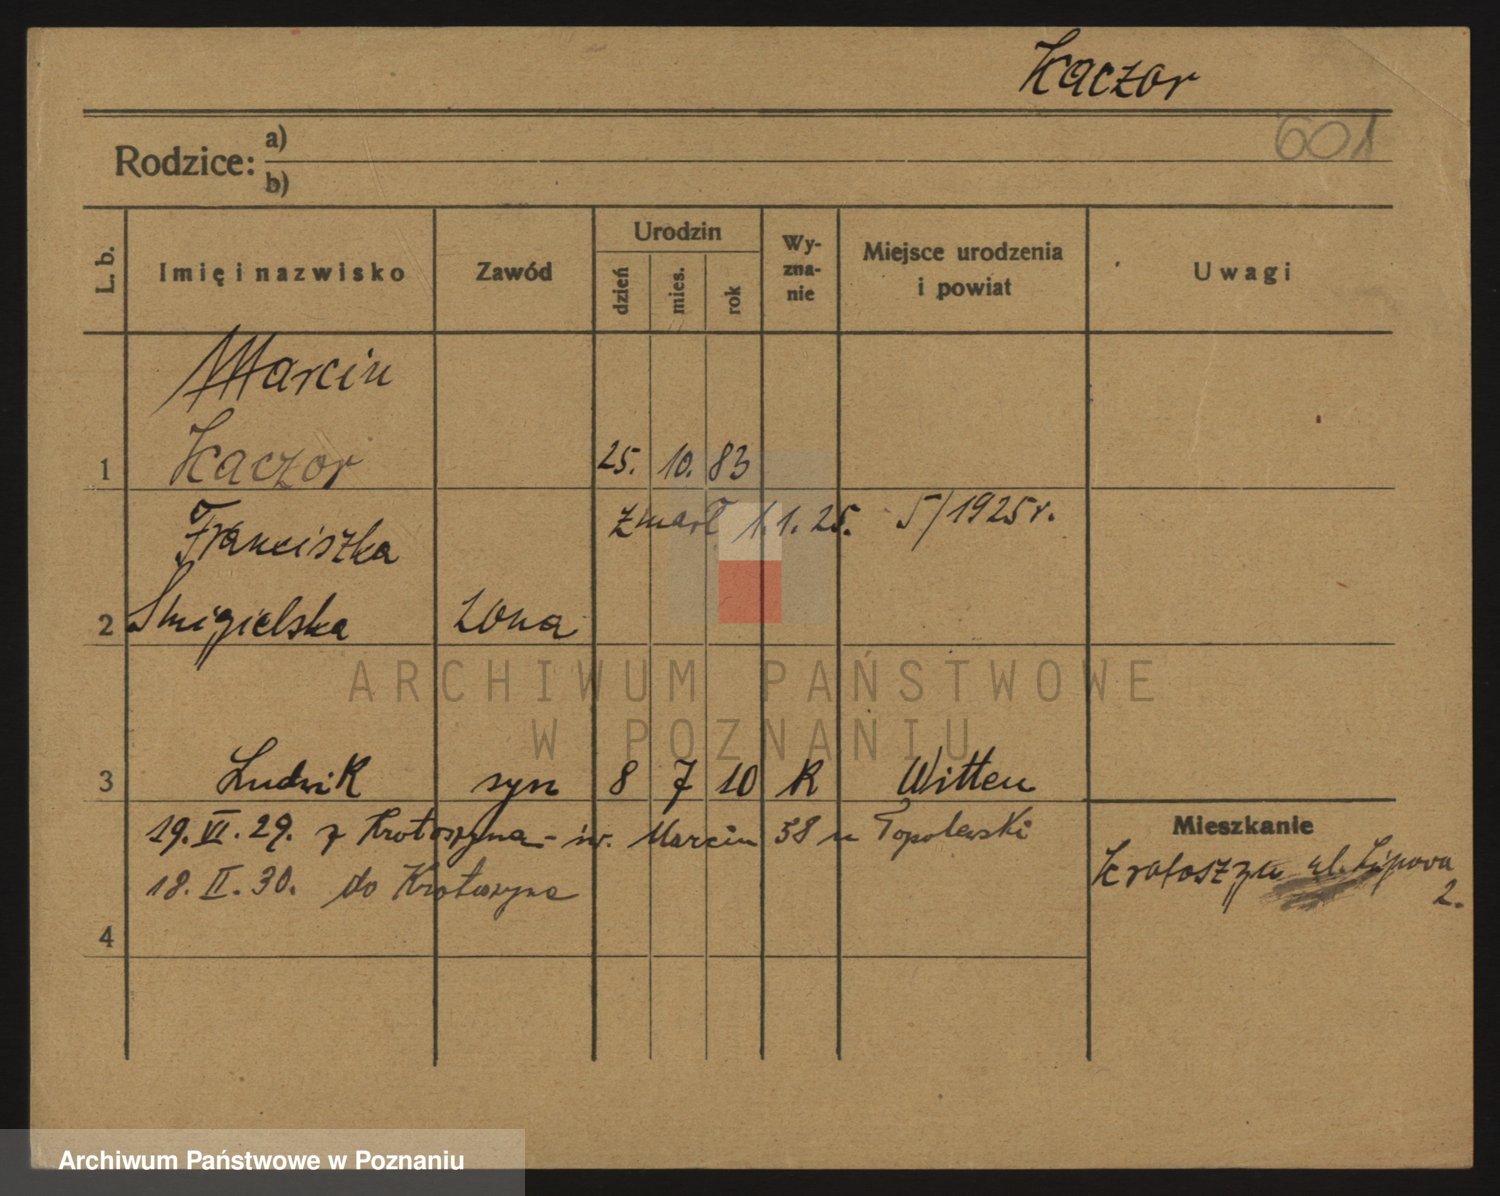 Kaczor
601
Rodzice: a)
b)
L. b.
Imię i nazwisko
Zawód
Urodzin
dzień
mies.
rok
Wy-
zna-
nie
Miejsce urodzenia
i powiat
Uwagi
Marcin
1 Kaczor 25. 10. 83
Franciszka zmarł 1.1.25. 5/1925r.
2 Smigielska żona
3 Ludwik syn 8 7 10 R Witten
19. VI. 29. z Krotoszyna - św. Marcin 58 u Topolewski
18. II. 30. do Krotoszyna
4
Mieszkanie
Krotoszyn ul. Lipowa
2.
ARCHIWUM PAŃSTWOWE
W POZNANIU
Archiwum Państwowe w Poznaniu